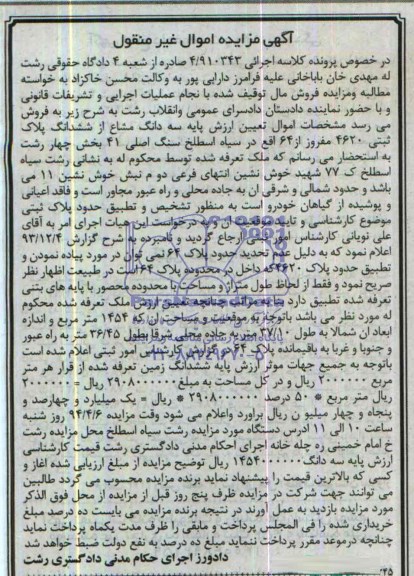 آگهی مزایده اموال غیر منقول
در خصوص پرونده کلاسه اجرائی ۴/۹۱۰۳۴۳ صادره از شعبه ۴ دادگاه حقوقی رشت
له مهدی خان باباخانی علیه فرامرز دارایی پور به وکالت محسن خاکزاد به خواسته
مطالبه ومزایده فروش مال توقیف شده با نجام عملیات اجرایی و تشریفات قانونی
و با حضور نماینده دادستان دادسرای عمومی وانقلاب رشت به شرح زیر به فروش
می رسد مشخصات اموال تعیین ارزش پایه سه دانگ مشاع از ششدانگ پلاک
ثبتی ۴۶۲۰ مفروز از۶۴ اقع در سیاه اسطلخ سنگ اصلی ۴۱ بخش چهار رشت
به استحضار می رسانم که ملک تعرفه شده توسط محکوم له به نشانی رشت سیاه
اسطلخ ک ۷۷ شهید خوش نشین انتهای فرعی دو م نبش خوش نشین ۱۱ می
باشد و حدود شمالی و شرقی ان به جاده محلی و راه عبور مجاور است و فاقد اعیانی
و پوشیده از گیاهان خودرو است به منظور تشخیص و تطبیق حدود پلاک ثبتی
موضوع کارشناسی و تایید و به درخواست این هیات اجرای امر به آقای
علی نویانی کارشناس امور ثبتی ارجاع گردید و نامبرده به شرح گزارش ۹۳/۱۲/۴
اعلام نمود که به دلیل عدم تحدید حدود پلاک ۶۴ نمی توان در مورد پیاده نمودن و
تطبیق حدود پلاک ۴۶۲۰که داخل در محدوده پلاک ۶۴ است در طبیعت اظهار نظر
صریح نمود و فقط از لحاظ طول متراژ و مساحت با محدوده محصور با پایه های بتنی
تعرفه شده تطبیق دارد بنا به مراتب چنانچه تعیین ارزش ملک تعرفه شده محکوم
له مورد نظر می باشد باتوجه به موقعیت و مساحت ان که ۱۴۵۴ متر مربع و اندازه
ابعاد ان شمالا به طول ۳۷/۱۰ متر به جاده محلی شرقا بطول ۳۶/۴۵ متر به راه عبور
و جنوبا و غربا به باقیمانده پلاک ۶۴ در گزارش کارشناس امور ثبتی اعلام شده است
باتوجه به جمیع جهات موثر ارزش پایه ششدانگ زمین تعرفه شده از قرار هر متر
مربع ۲۰۰۰۰۰۰ ریال و در کل مساحت به مبلغ ۲۹۰۸۰۰۰۰۰۰ ریال = ۲۰۰۰۰۰۰
ریال متر مربع * ۵۰ درصد ۲۹۰۸۰۰۰۰۰۰ * ریال = یک میلیارد و چهارصد و
پنجاه و چهار میلیو ن ریال براورد واعلام می شود وقت مزایده ۹۴/۴/۶ روز شنبه
ساعت ۱۰ الی ۱۱ ادرس دستگاه مورد مزایده رشت سیاه اسطلخ محل مزایده رشت
خ امام خمینی ره چله خانه اجرای احکام مدنی دادگستری رشت قیمت کارشناسی
ارزش پایه سه دانگ ۱۴۵۴۰۰۰۰۰۰ ریال توضیح مزایده از مبلغ ارزیابی شده اغاز و
کسی که بالاترین قیمت را پیشنهاد نماید برنده مزایده محسوب می گردد طالبین
می توانند جهت شرکت در مزایده ظرف پنج روز قبل از مزایده از محل فوق الذکر
مورد مزایده بازدید به عمل آورند در نتیجه برنده مزایده می بایست ده درصد مبلغ
خریداری شده را فی المجلس پرداخت و مابقی را ظرف مدت یکماه پرداخت نماید
چنانچه درموعد مقرر پرداخت ننماید مبلغ ده درصد به نفع دولت ضبط خواهد شد
دادورز اجرای حکام مدنی دادگستری رشت